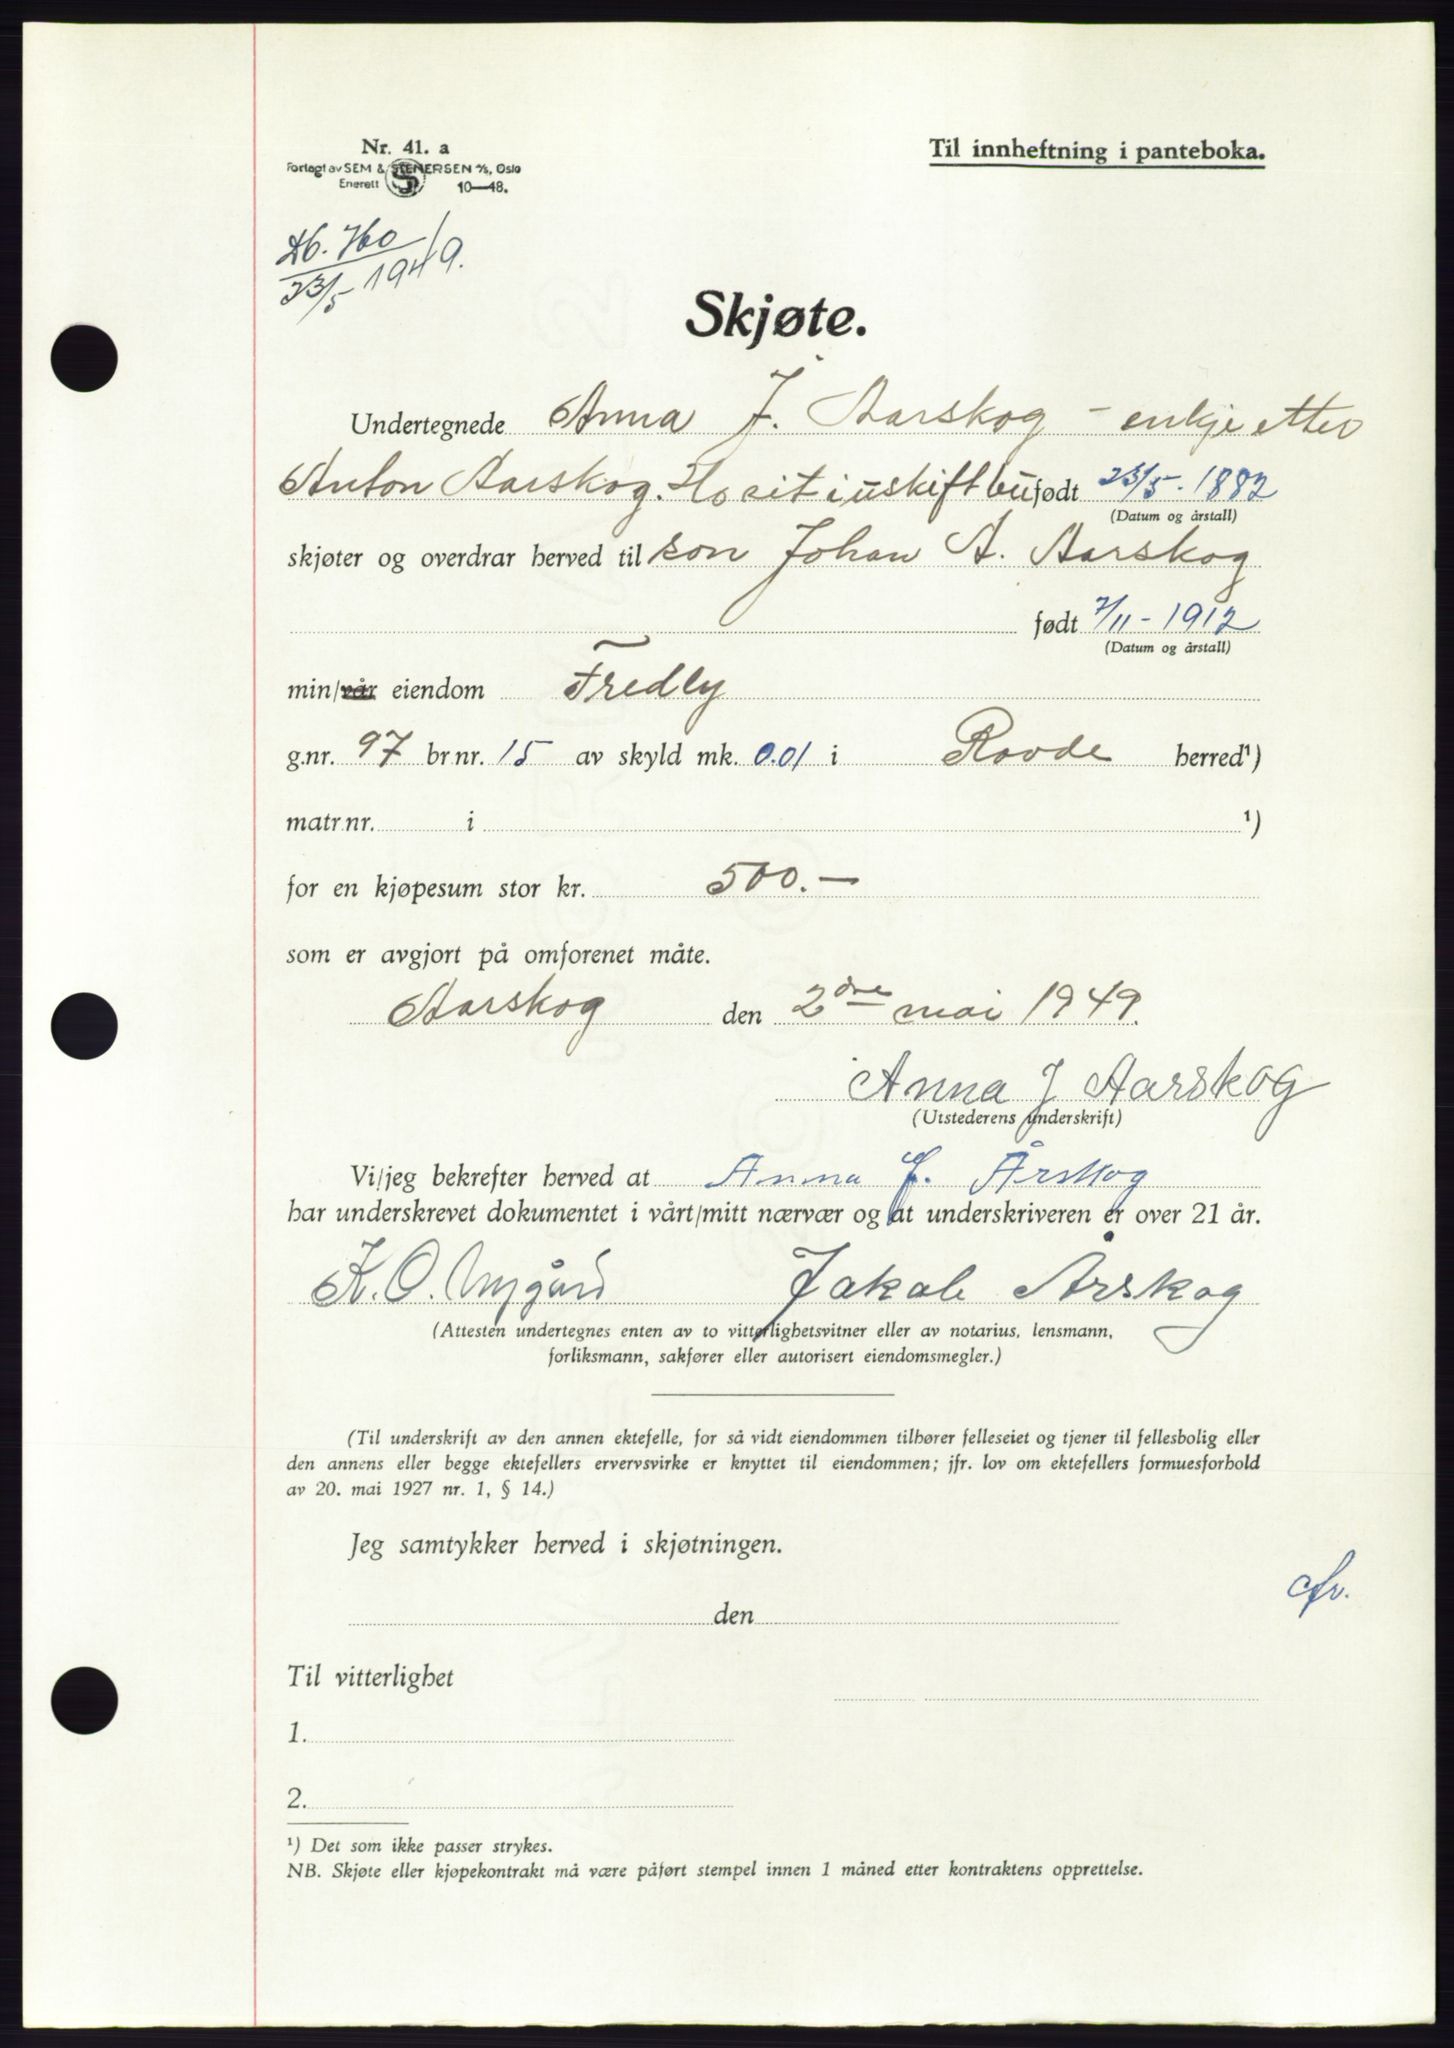 Nr. 41. a
Til innheftning i panteboka.
Forlagt av SEM & STENERSEN A/S, Oslo
Enerett 10—48.
Db. 760/1949.
23/5
Skjøte.
Undertegnede Anna J. Aarskog - enkje etter
Anton Aarskog. Ho sit i uskift bu født 23/5. 1882
(Datum og årstall)
skjøter og overdrar herved til son Johan A. Aarskog
født 7/11 - 1912
(Datum og årstall)
min/vår eiendom Fredly
g.nr. 97 br.nr. 15 av skyld mk. 0.01 i Rovde herred¹)
matr.nr. i ¹)
for en kjøpesum stor kr. 500.—
som er avgjort på omforenet måte.
Aarskog den 2dre mai 1949.
Anna J Aarskog
(Utstederens underskrift)
Vi/jeg bekrefter herved at Anna J. Årskog
har underskrevet dokumentet i vårt/mitt nærvær og at underskriveren er over 21 år.
K. O. Nygård Jakob Årskog
(Attesten undertegnes enten av to vitterlighetsvitner eller av notarius, lensmann,
forliksmann, sakfører eller autorisert eiendomsmegler.)
(Til underskrift av den annen ektefelle, for så vidt eiendommen tilhører felleseiet og tjener til fellesbolig eller
den annens eller begge ektefellers ervervsvirke er knyttet til eiendommen; jfr. lov om ektefellers formuesforhold
av 20. mai 1927 nr. 1, § 14.)
Jeg samtykker herved i skjøtningen.
den
Til vitterlighet
1.
2.
¹) Det som ikke passer strykes.
NB. Skjøte eller kjøpekontrakt må være påført stempel innen 1 måned etter kontraktens opprettelse.